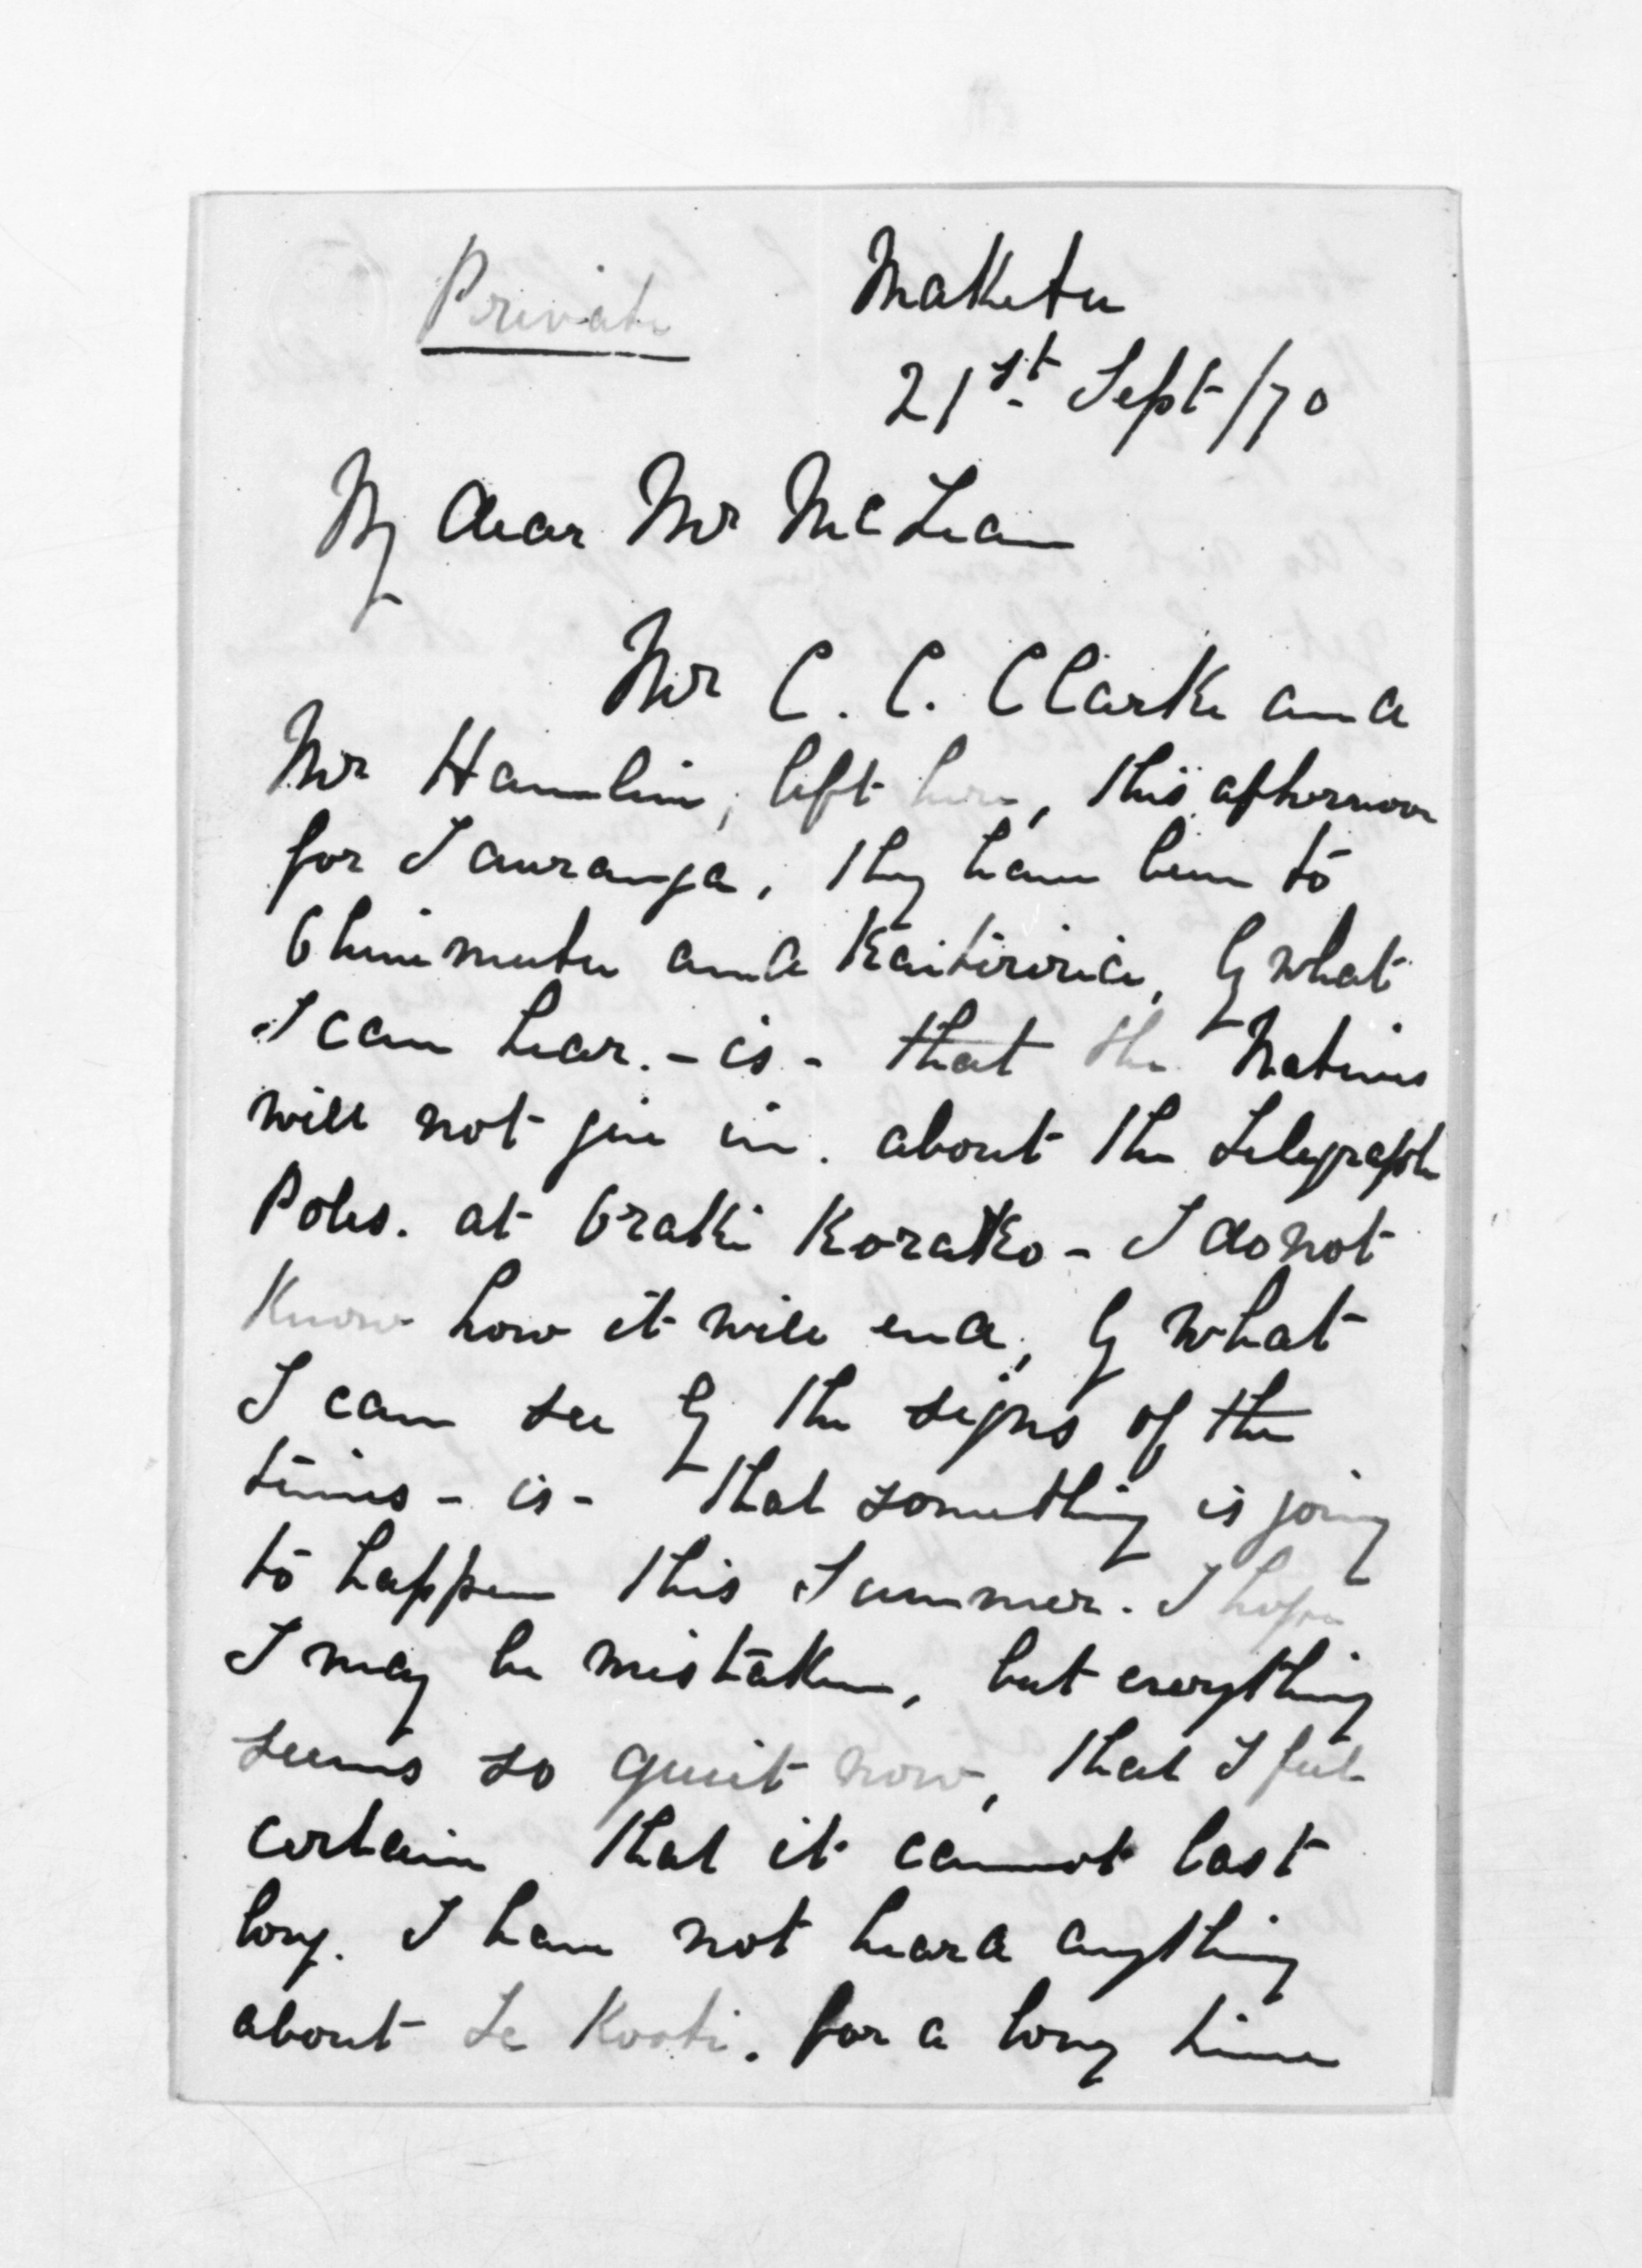 Private
Maketu
21st Sept /70
My dear Mr McLean
Mr C. C. Clarke and
Mr Hamlin, left here, this afternoon
for Tauranga, They have been to
Ohinemutu and Kaiteriria, by what
I can hear. - is - that the Natives
will not give in. about the Telegraph
Poles. at Oraki Korako - I do not
Know how it will end, by what
I can see by the signs of the
times - is - that something is going
to happen this Summer. I hope
I may be mistaken, but everything
seems so quiet now, that I feel
certain that it cannot last
long. I have not heard anything
about Te Kooti. for a long time